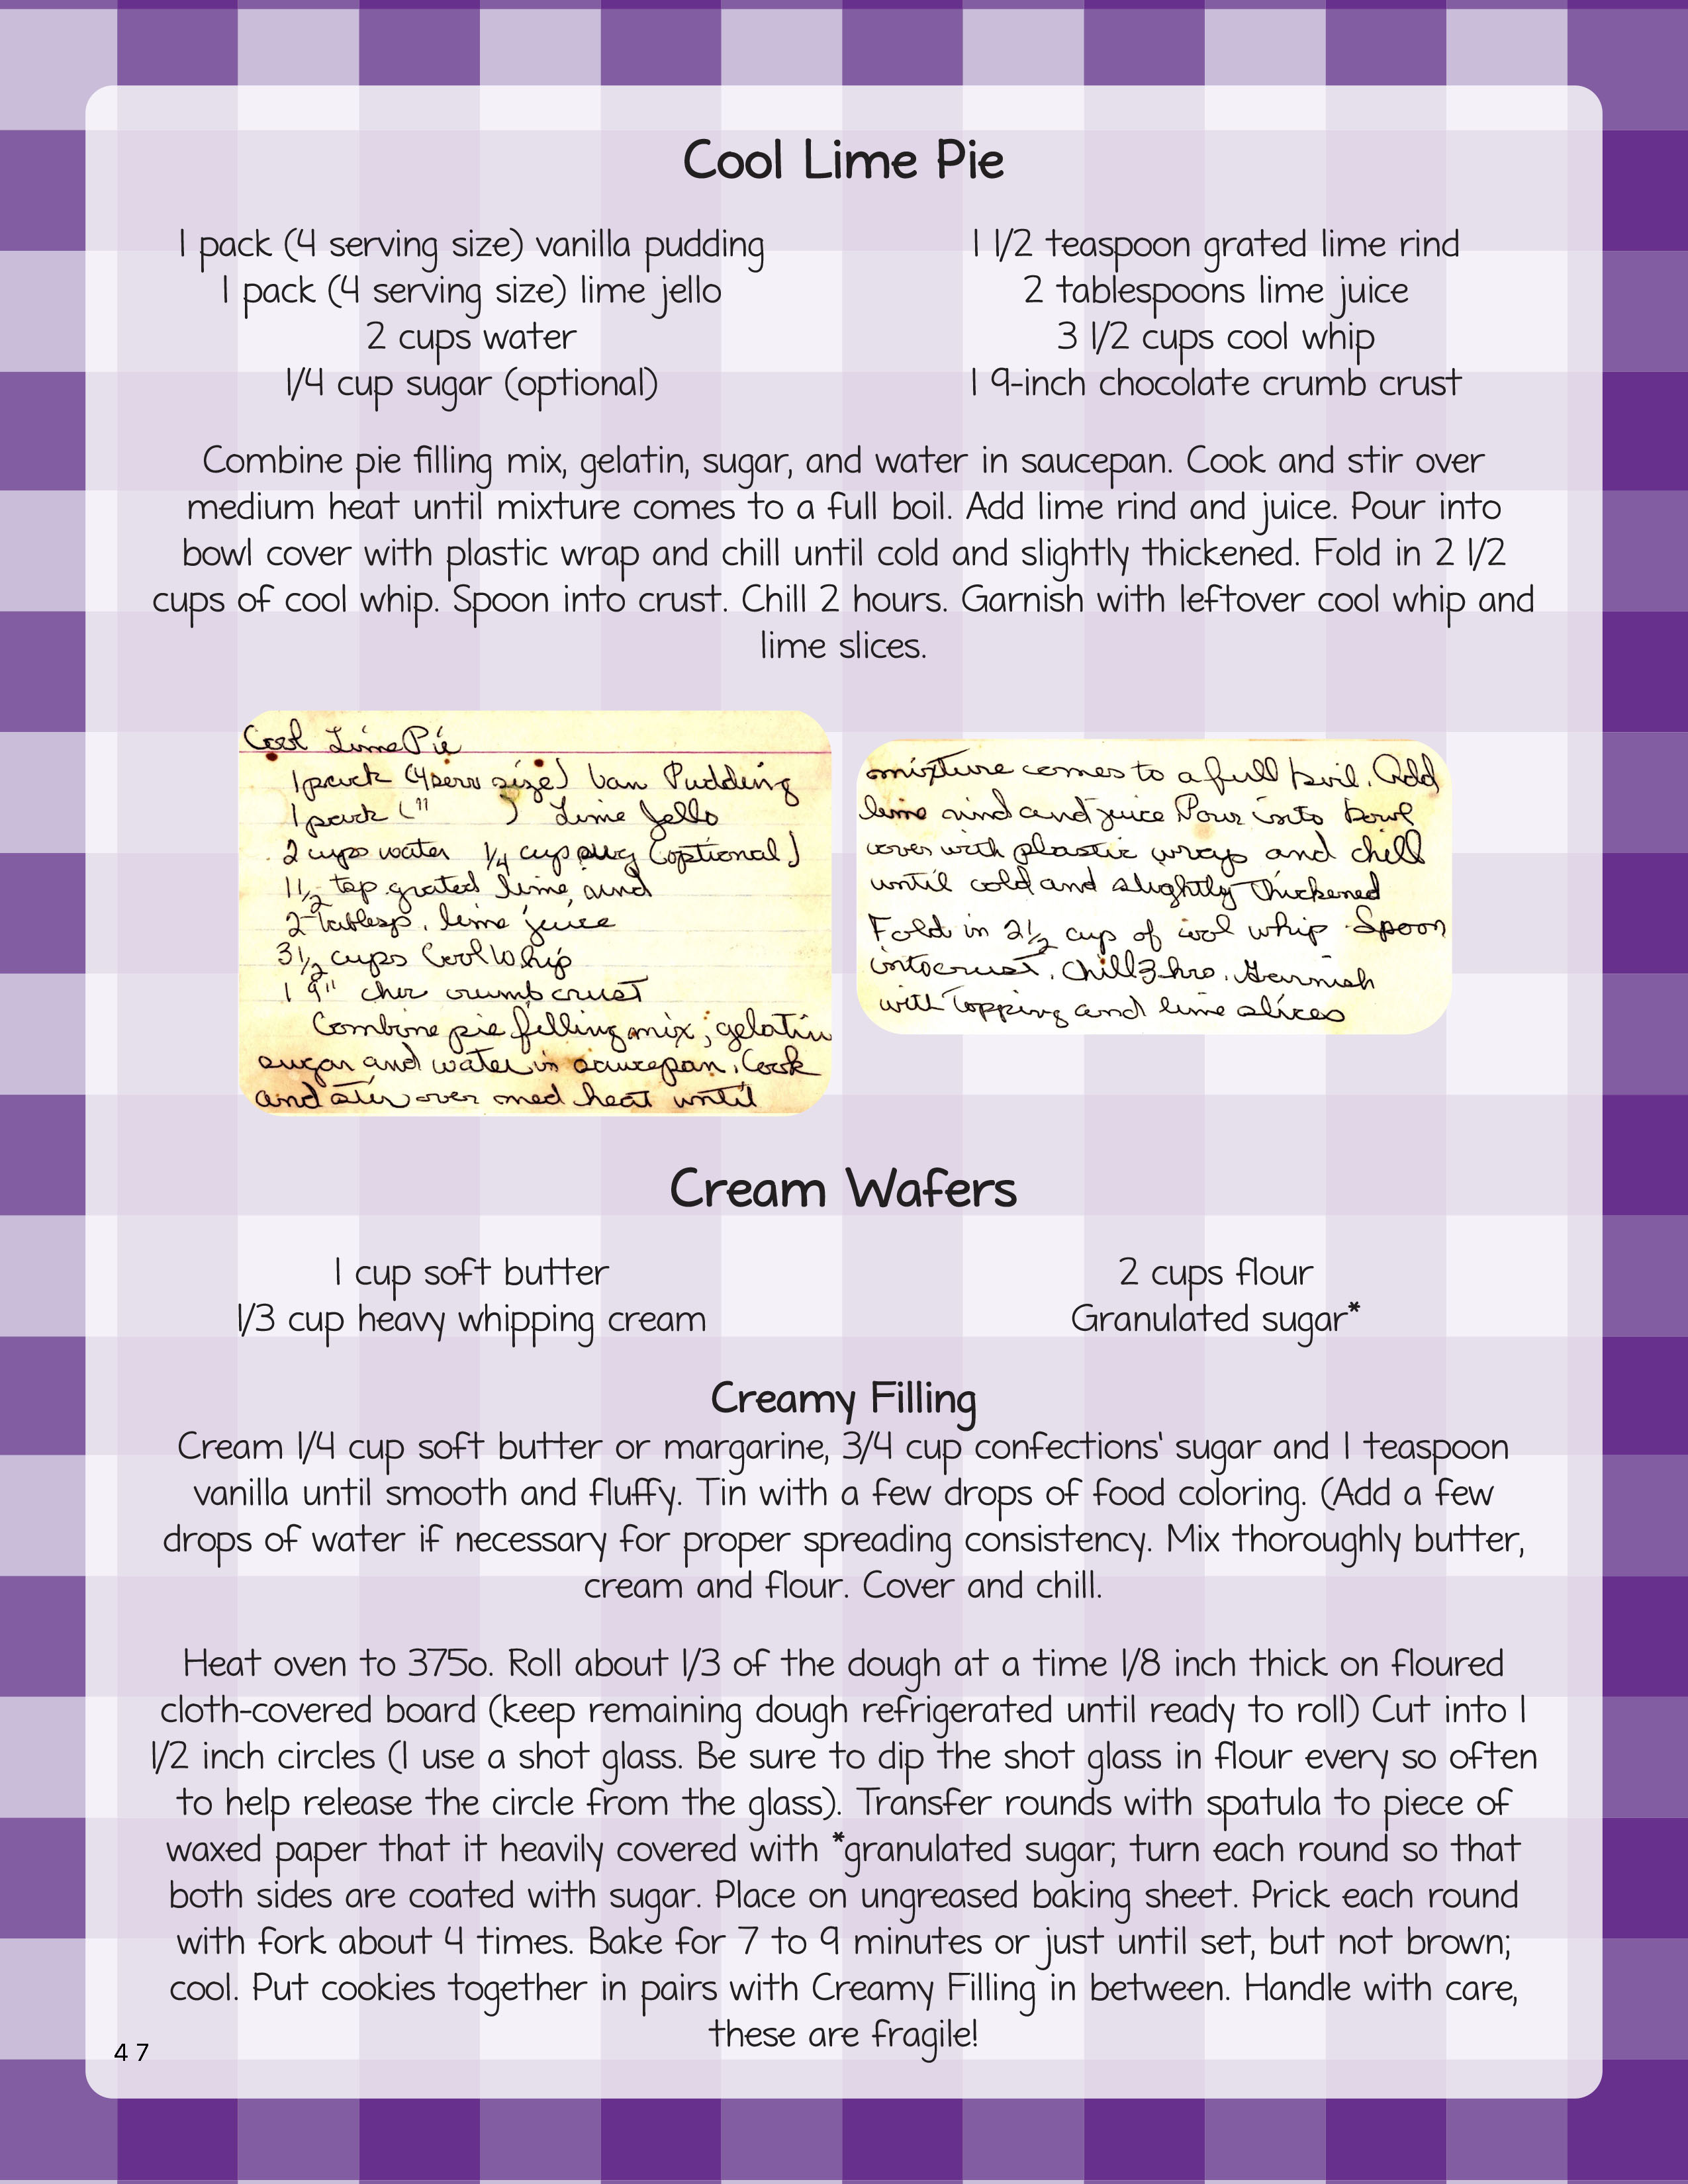 Cool Lime Pie
1 pack (4 serving size) vanilla pudding
1 pack (4 serving size) lime jello
2 cups water
1/4 cup sugar (optional)
1 1/2 teaspoon grated lime rind
2 tablespoons lime juice
3 1/2 cups cool whip
1 9-inch chocolate crumb crust
Combine pie filling mix, gelatin, sugar, and water in saucepan. Cook and stir over
medium heat until mixture comes to a full boil. Add lime rind and juice. Pour into
bowl cover with plastic wrap and chill until cold and slightly thickened. Fold in 2 1/2
cups of cool whip. Spoon into crust. Chill 2 hours. Garnish with leftover cool whip and
lime slices.
Cool Lime Pie
1 pack (4 serv size) Van Pudding
1 pack (" ) Lime Jello
2 cups water 1/4 cup sug (optional)
1 1/2 tsp grated lime rind
2 tablesp. lime juice
3 1/2 cups Cool Whip
1 9" choc crumb crust
Combine pie filling mix, gelatin
sugar and water in saucepan. Cook
and stir over med heat until
mixture comes to a full boil. Add
lime rind and juice Pour into bowl
cover with plastic wrap and chill
until cold and slightly thickened
Fold in 2 1/2 cup of cool whip. Spoon
into crust. Chill 3 hrs. Garnish
with topping and lime slices
Cream Wafers
1 cup soft butter
1/3 cup heavy whipping cream
2 cups flour
Granulated sugar*
Creamy Filling
Cream 1/4 cup soft butter or margarine, 3/4 cup confections' sugar and 1 teaspoon
vanilla until smooth and fluffy. Tin with a few drops of food coloring. (Add a few
drops of water if necessary for proper spreading consistency. Mix thoroughly butter,
cream and flour. Cover and chill.
Heat oven to 375o. Roll about 1/3 of the dough at a time 1/8 inch thick on floured
cloth-covered board (keep remaining dough refrigerated until ready to roll) Cut into 1
1/2 inch circles (I use a shot glass. Be sure to dip the shot glass in flour every so often
to help release the circle from the glass). Transfer rounds with spatula to piece of
waxed paper that it heavily covered with *granulated sugar; turn each round so that
both sides are coated with sugar. Place on ungreased baking sheet. Prick each round
with fork about 4 times. Bake for 7 to 9 minutes or just until set, but not brown;
cool. Put cookies together in pairs with Creamy Filling in between. Handle with care,
these are fragile!
47